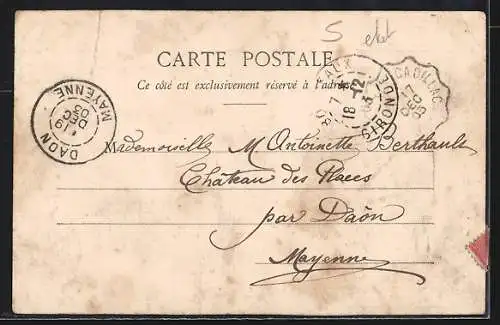 S
CARTE POSTALE
Ce côté est exclusivement réservé à l'adresse
CADILLAC
7
DEC
03
GIRONDE
7
18
12
03
DAON
MAYENNE
9
DEC
03
Mademoiselle M Antoinette Berthault
Château des Places
par Daôn
Mayenne